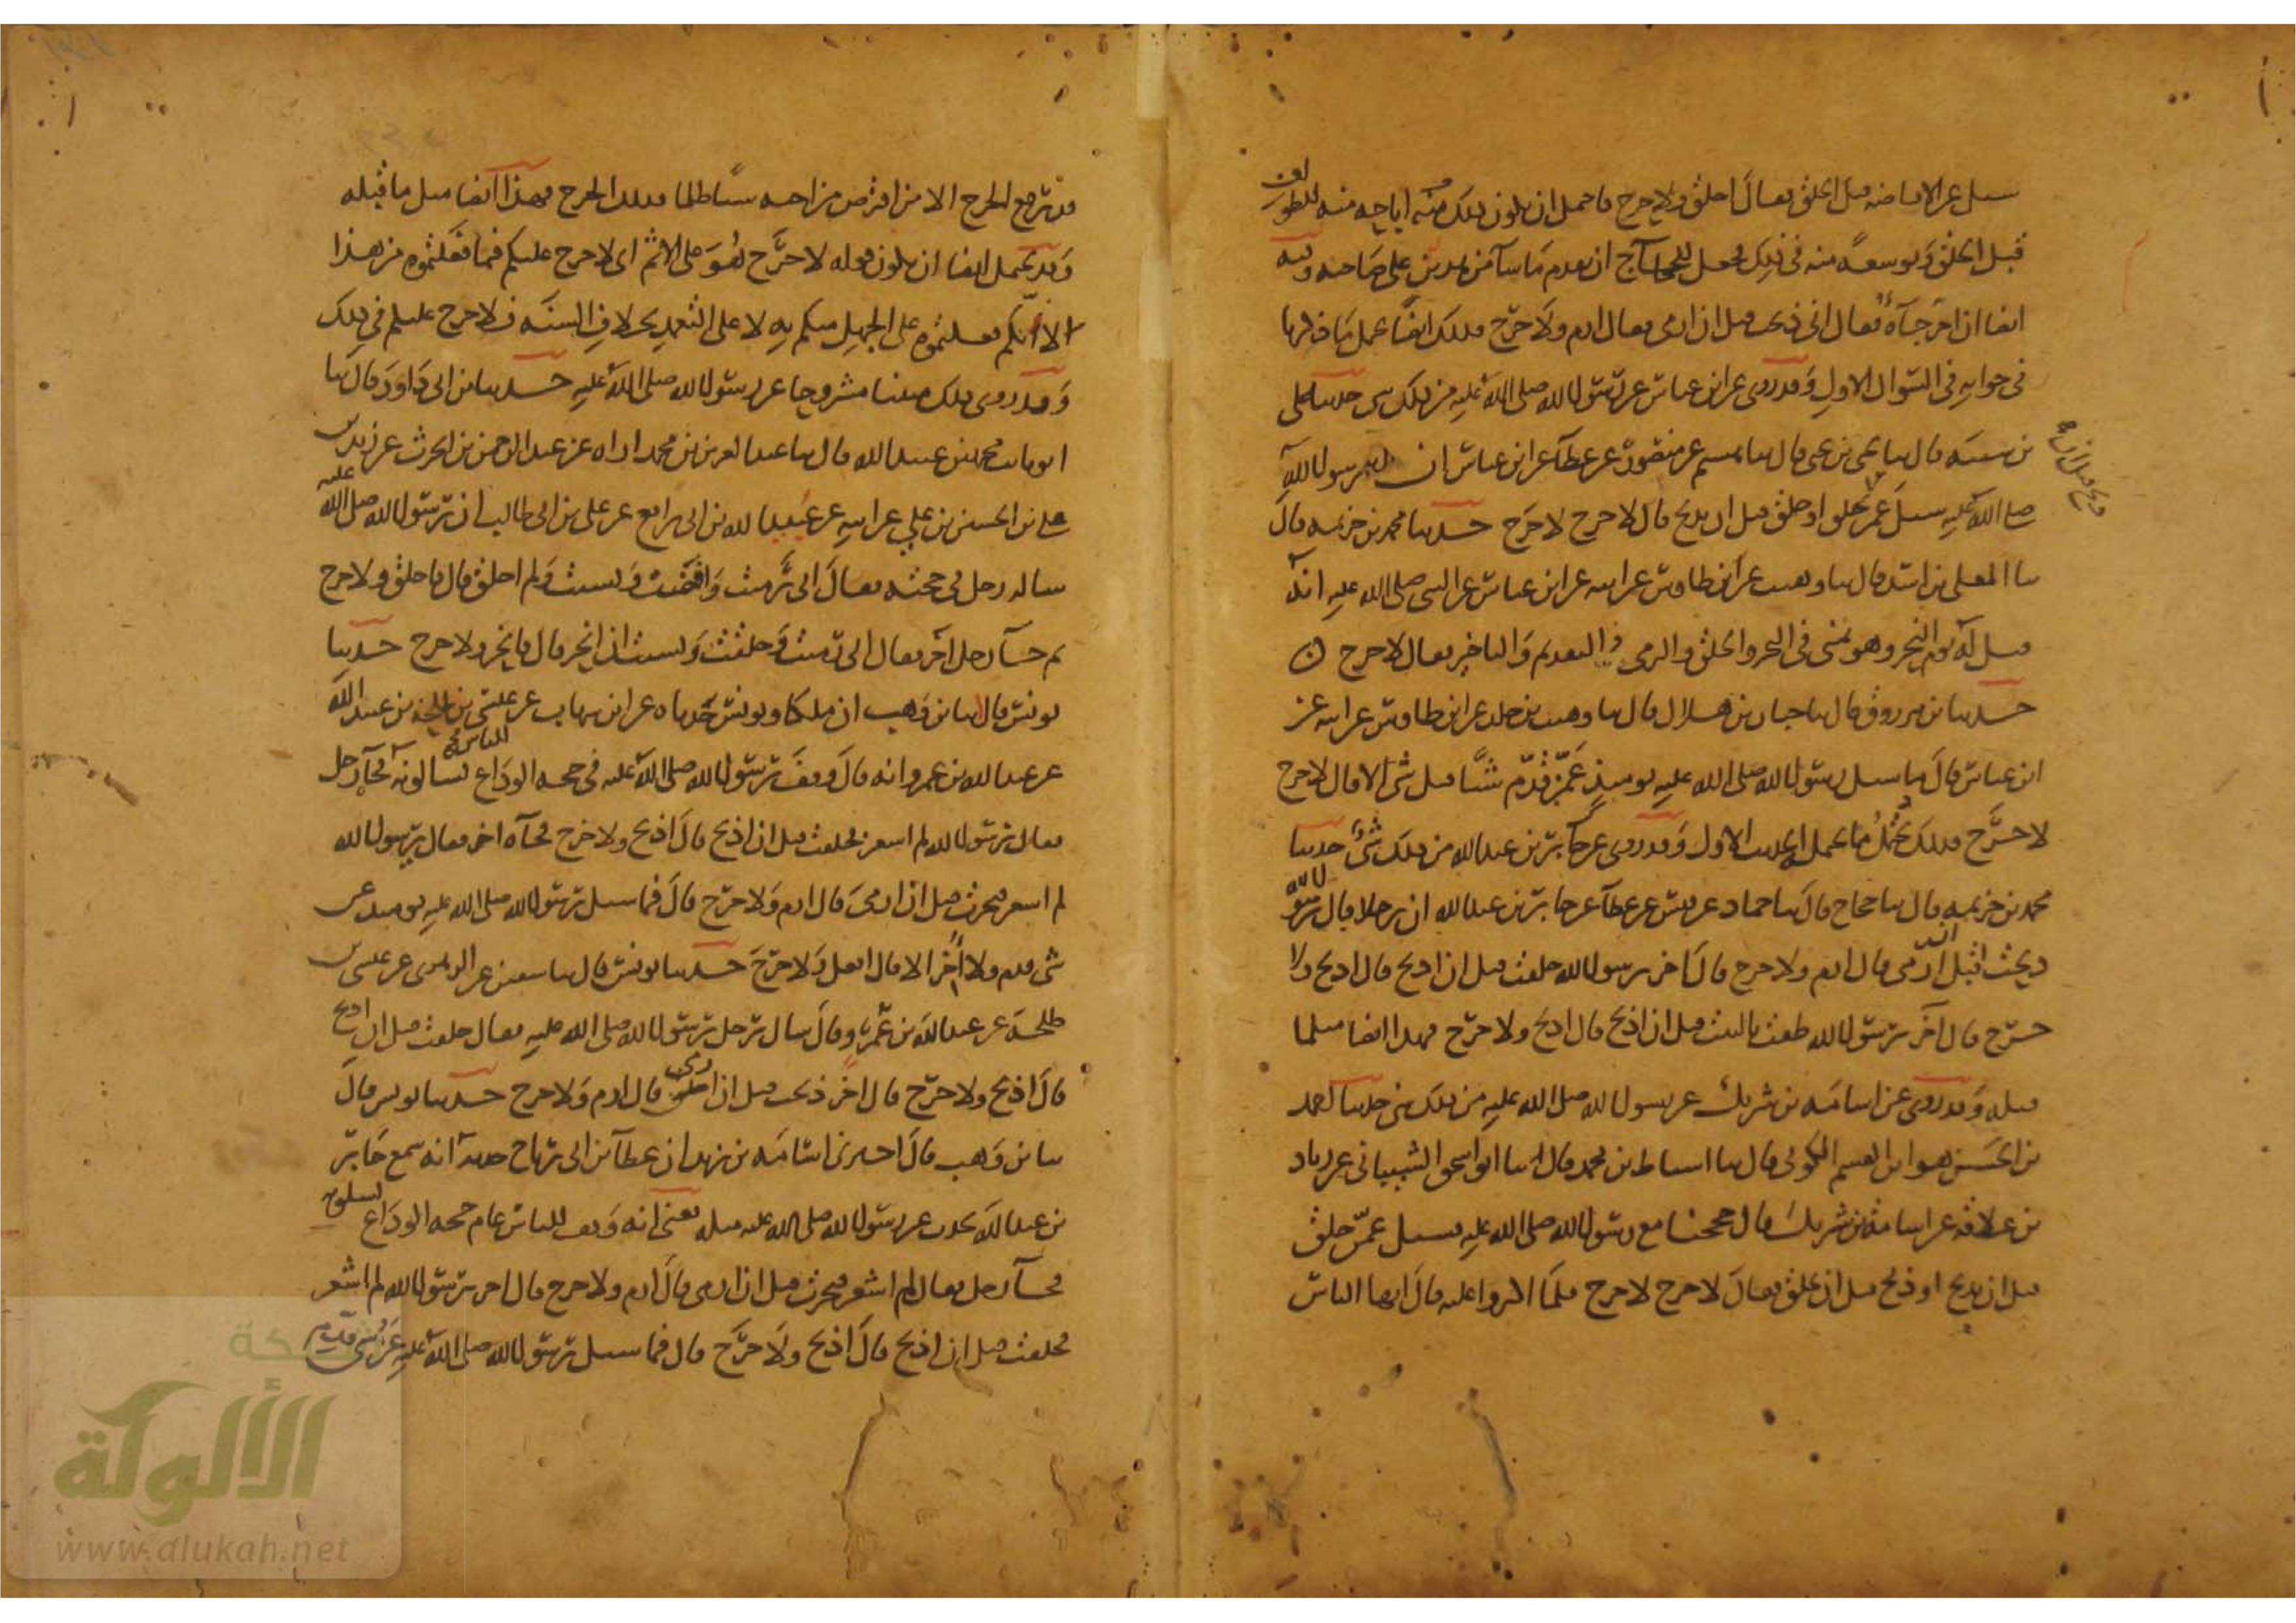 سئل عن الافاضه قبل الحلق فقال احلق ولا حرج فاحتمل ان يكون ذلك منه اباحه منه للطواف
قبل الحلق وتوسعة منه في ذلك فجعل للحاج ان يقدم ما شآ من هذين على صاحبه وفيه
ايضا ان اخر جآه فقال اني ذبحت قبل ان ارمي فقال ارم ولا حرج فذلك ايضا يحتمل ما ذكرنا
في جوابه في السؤال الاول وقد روي عن ابن عباس عن رسول الله صلى الله عليه من ذلك شي حدثنا علي
بن شيبه قال ثنا يحيى بن يحيى قال ثنا هشيم عن منصور عن عطآ عن ابن عباس ان رسول الله
صلى الله عليه سئل عمن حلق قبل ان يذبح قال لا حرج لا حرج حدثنا محمد بن خزيمه قال
ثنا المعلى بن اسد قال ثنا وهيب عن ابن طاوس عن ابيه عن ابن عباس عن النبي صلى الله عليه انه
قيل له يوم النحر وهو بمنى في النحر والحلق والرمي والتقديم والتاخير فقال لا حرج
حدثنا بن مرزوق قال ثنا حبان بن هلال قال ثنا وهيب بن خلد عن ابن طاوس عن ابيه عن
ابن عباس قال ما سئل رسول الله صلى الله عليه يومئذ عمن قدم شيئا قبل شي الا قال لا حرج
لا حرج فذلك يحتمل ما يحتمل الحديث الاول وقد روي عن جابر بن عبد الله من ذلك شي حدثنا
محمد بن خزيمه قال ثنا حجاج قال ثنا حماد عن قيس عن عطآ عن جابر بن عبد الله ان رجلا قال يرسول الله
ذبحت قبل ان ارمي قال ارم ولا حرج قال اخر يرسول الله حلقت قبل ان اذبح قال اذبح ولا
حرج قال آخر يرسول الله طفت بالبيت قبل ان اذبح قال اذبح ولا حرج فهذا ايضا مثل ما
قبله وقد روي عن اسامه بن شريك عن رسول الله صلى الله عليه من ذلك شي حدثنا احمد
بن الحسن هو ابن القسم الكوفي قال ثنا اسباط بن محمد قال ثنا ابو اسحق الشيباني عن زياد
بن علاقه عن اسامة بن شريك قال حججنا مع رسول الله صلى الله عليه فسئل عمن حلق
قبل ان يذبح او ذبح قبل ان يحلق فقال لا حرج لا حرج فلما اكثروا عليه قال ايها الناس
قد رفع الحرج الا من اقترض من اخيه شيئا ظلما فذلك الحرج فهذا ايضا مثل ما قبله
وقد يحتمل ايضا ان يكون قوله لا حرج هو على الاثم اى لا حرج عليكم فيما فعلتموه من هذا
لانكم فعلتموه على الجهل منكم به لا على التعمد بخلاف السنه فلا حرج عليكم في ذلك
وقد روي ذلك مبينا مشروحا عن رسول الله صلى الله عليه حدثنا بن ابي داود قال ثنا
ابو ثابت محمد بن عبيد الله قال ثنا عبد العزيز بن محمد اراه عن عبد الرحمن بن الحرث عن زيد بن
علي بن الحسين بن علي عن ابيه عن عبيد الله بن ابي رافع عن علي بن ابي طالب ان رسول الله صلى الله عليه
ساله رجل في حجته فقال اني رميت وافضت ونسيت ولم احلق قال فاحلق ولا حرج
ثم جآ رجل آخر فقال اني رميت وحلقت ونسيت ان انحر قال فانحر ولا حرج حدثنا
يونس قال ثنا بن وهب ان ملكا ويونس حدثاه عن ابن شهاب عن عيسى بن طلحة بن عبيد الله
عن عبد الله بن عمرو انه قال وقف رسول الله صلى الله عليه في حجه الوداع للناس يسالونه فجآ رجل
فقال يرسول الله لم اشعر فحلقت قبل ان اذبح قال اذبح ولا حرج فجآه اخر فقال يرسول الله
لم اشعر فنحرت قبل ان ارمي قال ارم ولا حرج قال فما سئل رسول الله صلى الله عليه يومئذ عن
شي قدم ولا اخر الا قال افعل ولا حرج حدثنا يونس قال ثنا سفين عن الزهري عن عيسى بن
طلحه عن عبد الله بن عمرو قال سال رجل رسول الله صلى الله عليه فقال حلقت قبل ان اذبح
قال اذبح ولا حرج قال اخر ذبحت قبل ان ارمي قال ارم ولا حرج حدثنا يونس قال
ثنا بن وهب قال اخبرني اسامه بن زيد ان عطآ بن ابي رباح حدثه انه سمع جابر
بن عبد الله يحدث عن رسول الله صلى الله عليه مثله يعني انه وقف للناس عام حجه الوداع يسلونه
فجآ رجل فقال لم اشعر فنحرت قبل ان ارمي قال ارم ولا حرج قال اخر يرسول الله لم اشعر
فحلقت قبل ان اذبح قال اذبح ولا حرج قال فما سئل رسول الله صلى الله عليه عن شي قدم
الألوكة
www.alukah.net